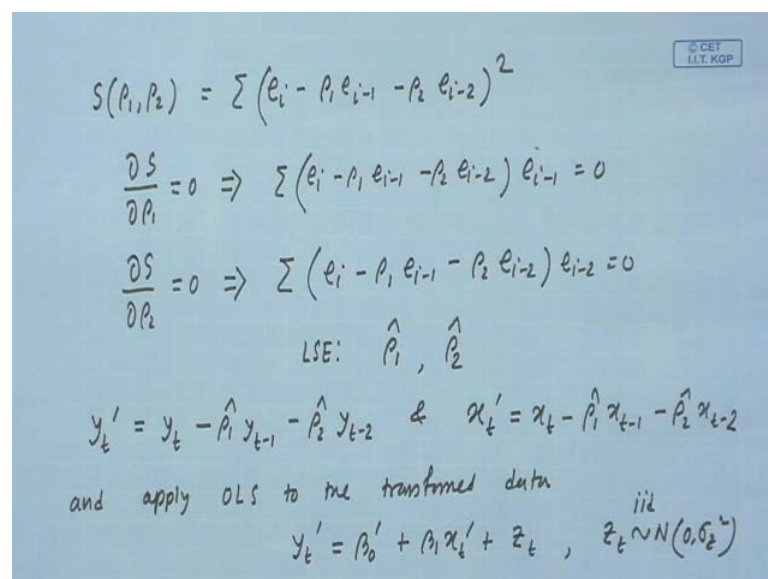 © CET
I.I.T. KGP
S(ρ₁,ρ₂) = Σ (eᵢ - ρ₁ eᵢ₋₁ - ρ₂ eᵢ₋₂)²
∂S/∂ρ₁ = 0 ⇒ Σ (eᵢ - ρ₁ eᵢ₋₁ - ρ₂ eᵢ₋₂) eᵢ₋₁ = 0
∂S/∂ρ₂ = 0 ⇒ Σ (eᵢ - ρ₁ eᵢ₋₁ - ρ₂ eᵢ₋₂) eᵢ₋₂ = 0
LSE: ρ̂₁ , ρ̂₂
yₜ' = yₜ - ρ̂₁ yₜ₋₁ - ρ̂₂ yₜ₋₂ & xₜ' = xₜ - ρ̂₁ xₜ₋₁ - ρ̂₂ xₜ₋₂
and apply OLS to the transformed data
yₜ' = β₀' + β₁ xₜ' + zₜ , zₜ iid ~ N(0, σ_z²)